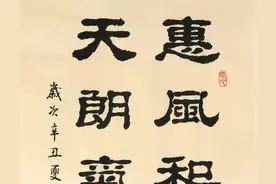 惠風和
天朗氣
歲次辛丑夏